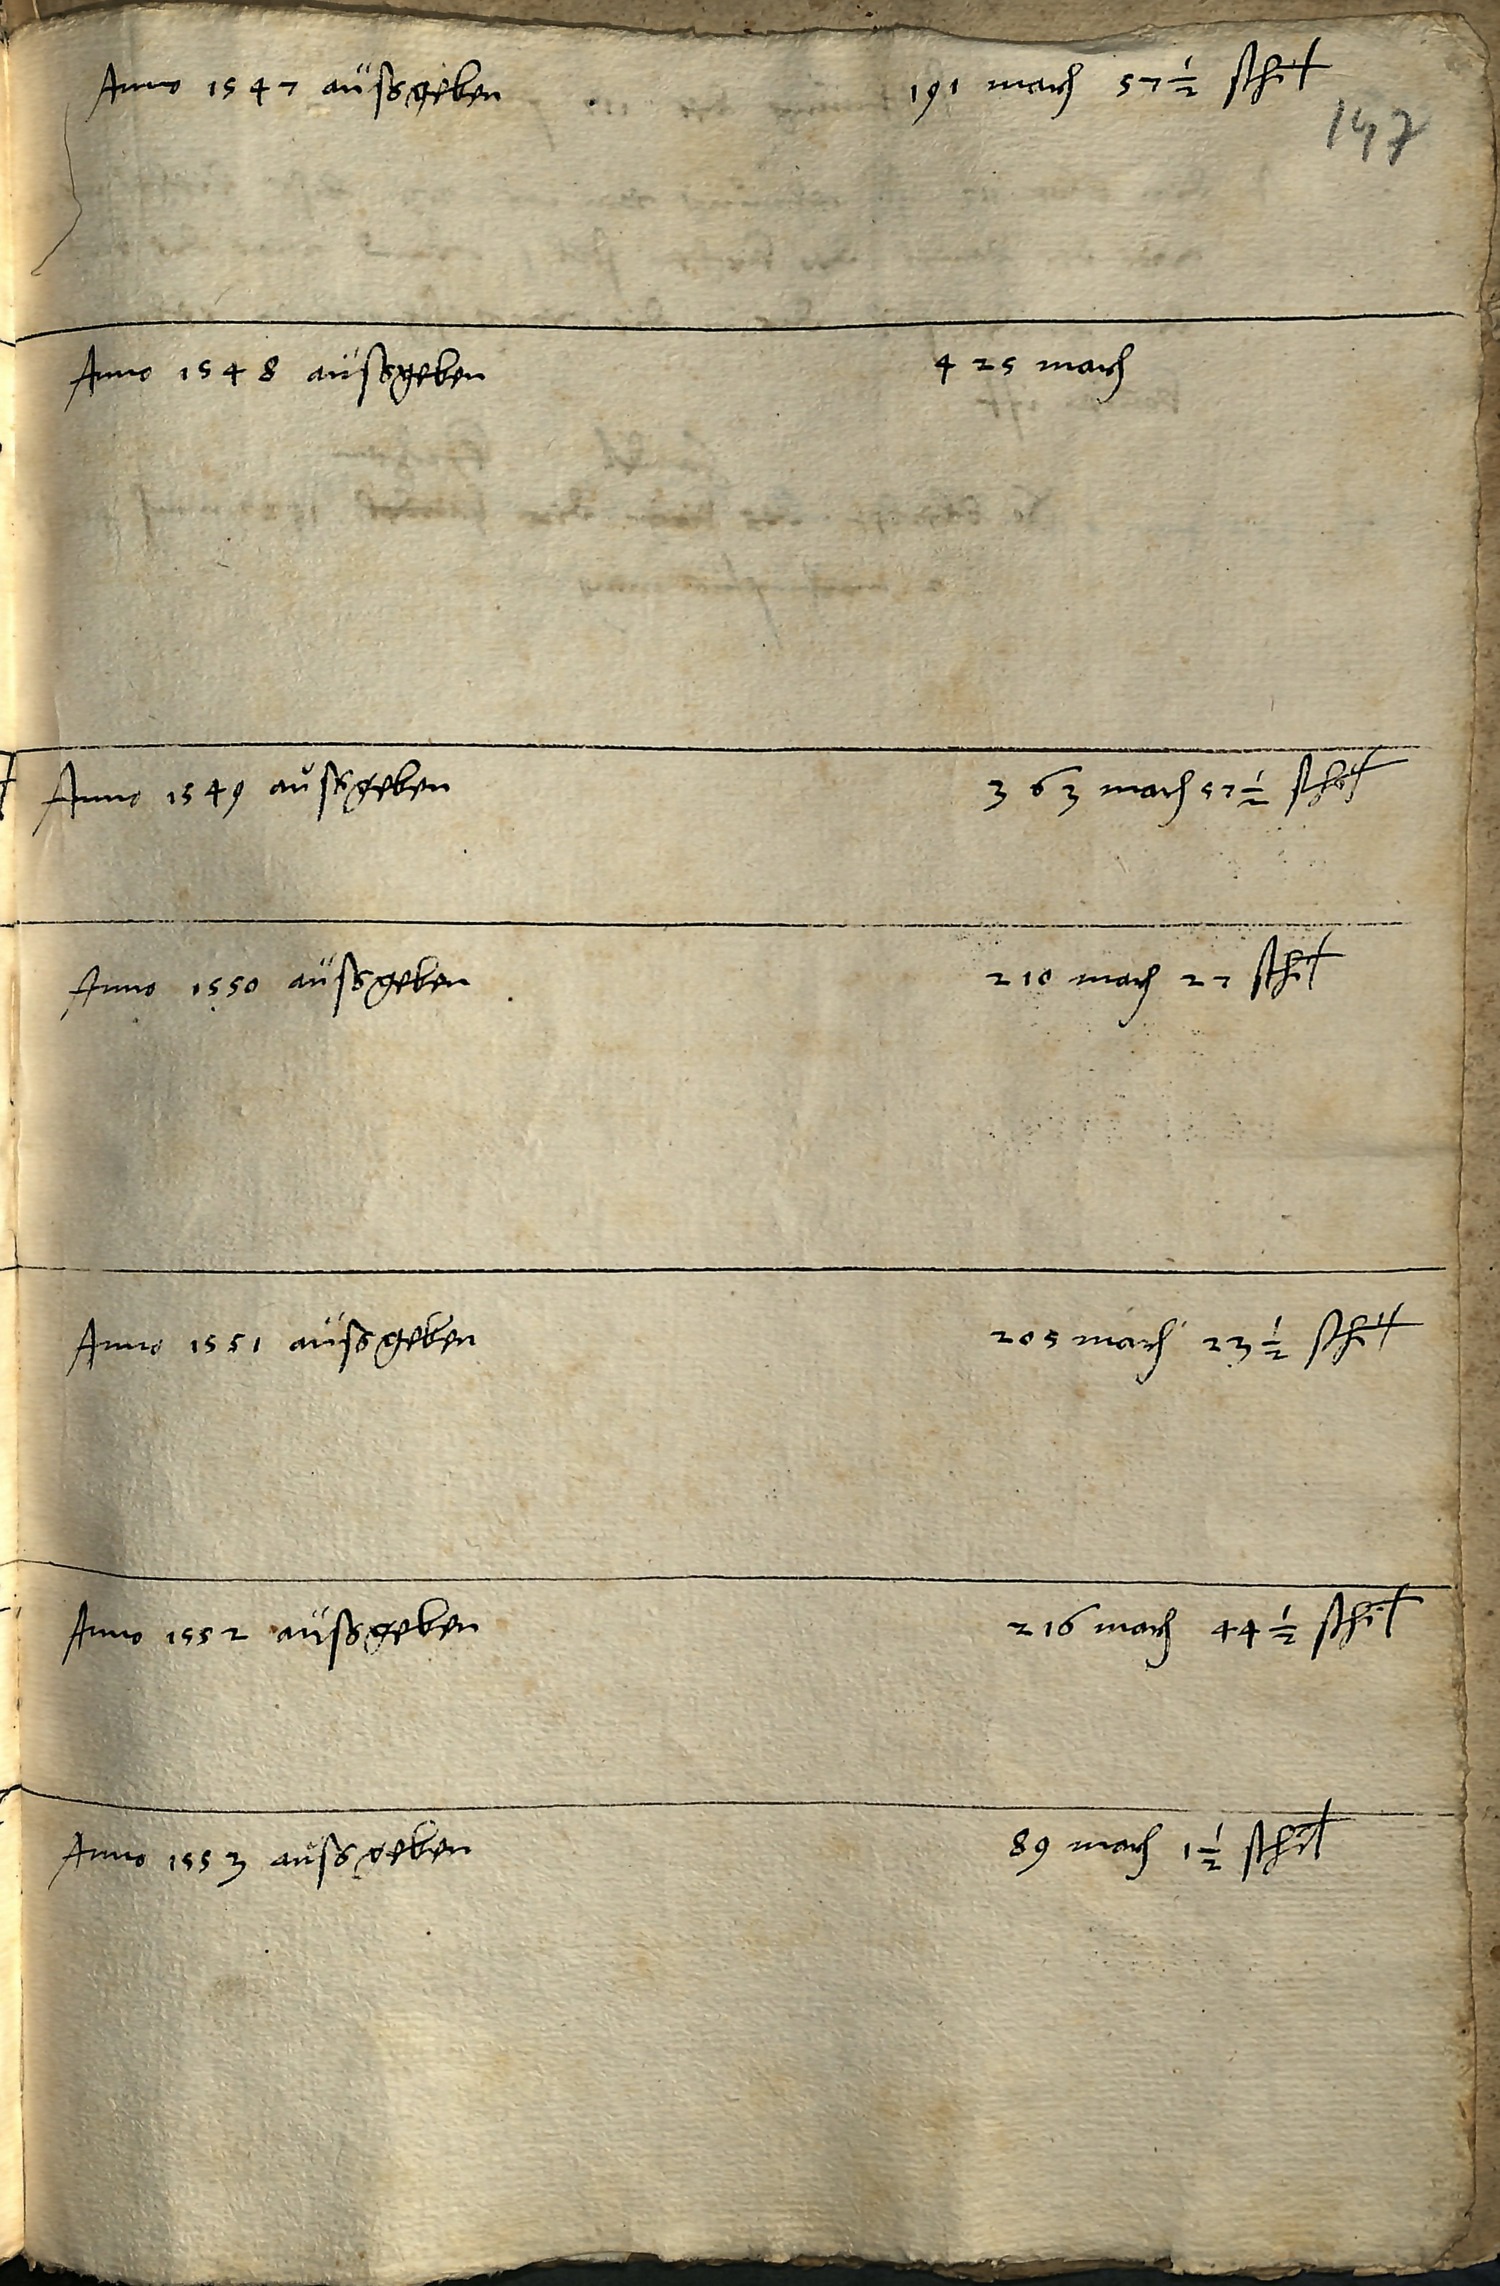 Anno 1547 außgeben 191 march 57 1/2 schil
147
Anno 1548 außgeben 425 march
Anno 1549 außgeben 363 march 57 1/2 schil
Anno 1550 außgeben 210 march 27 schil
Anno 1551 außgeben 205 march 23 1/2 schil
Anno 1552 außgeben 216 march 44 1/2 schil
Anno 1553 außgeben 89 march 1 1/2 schil